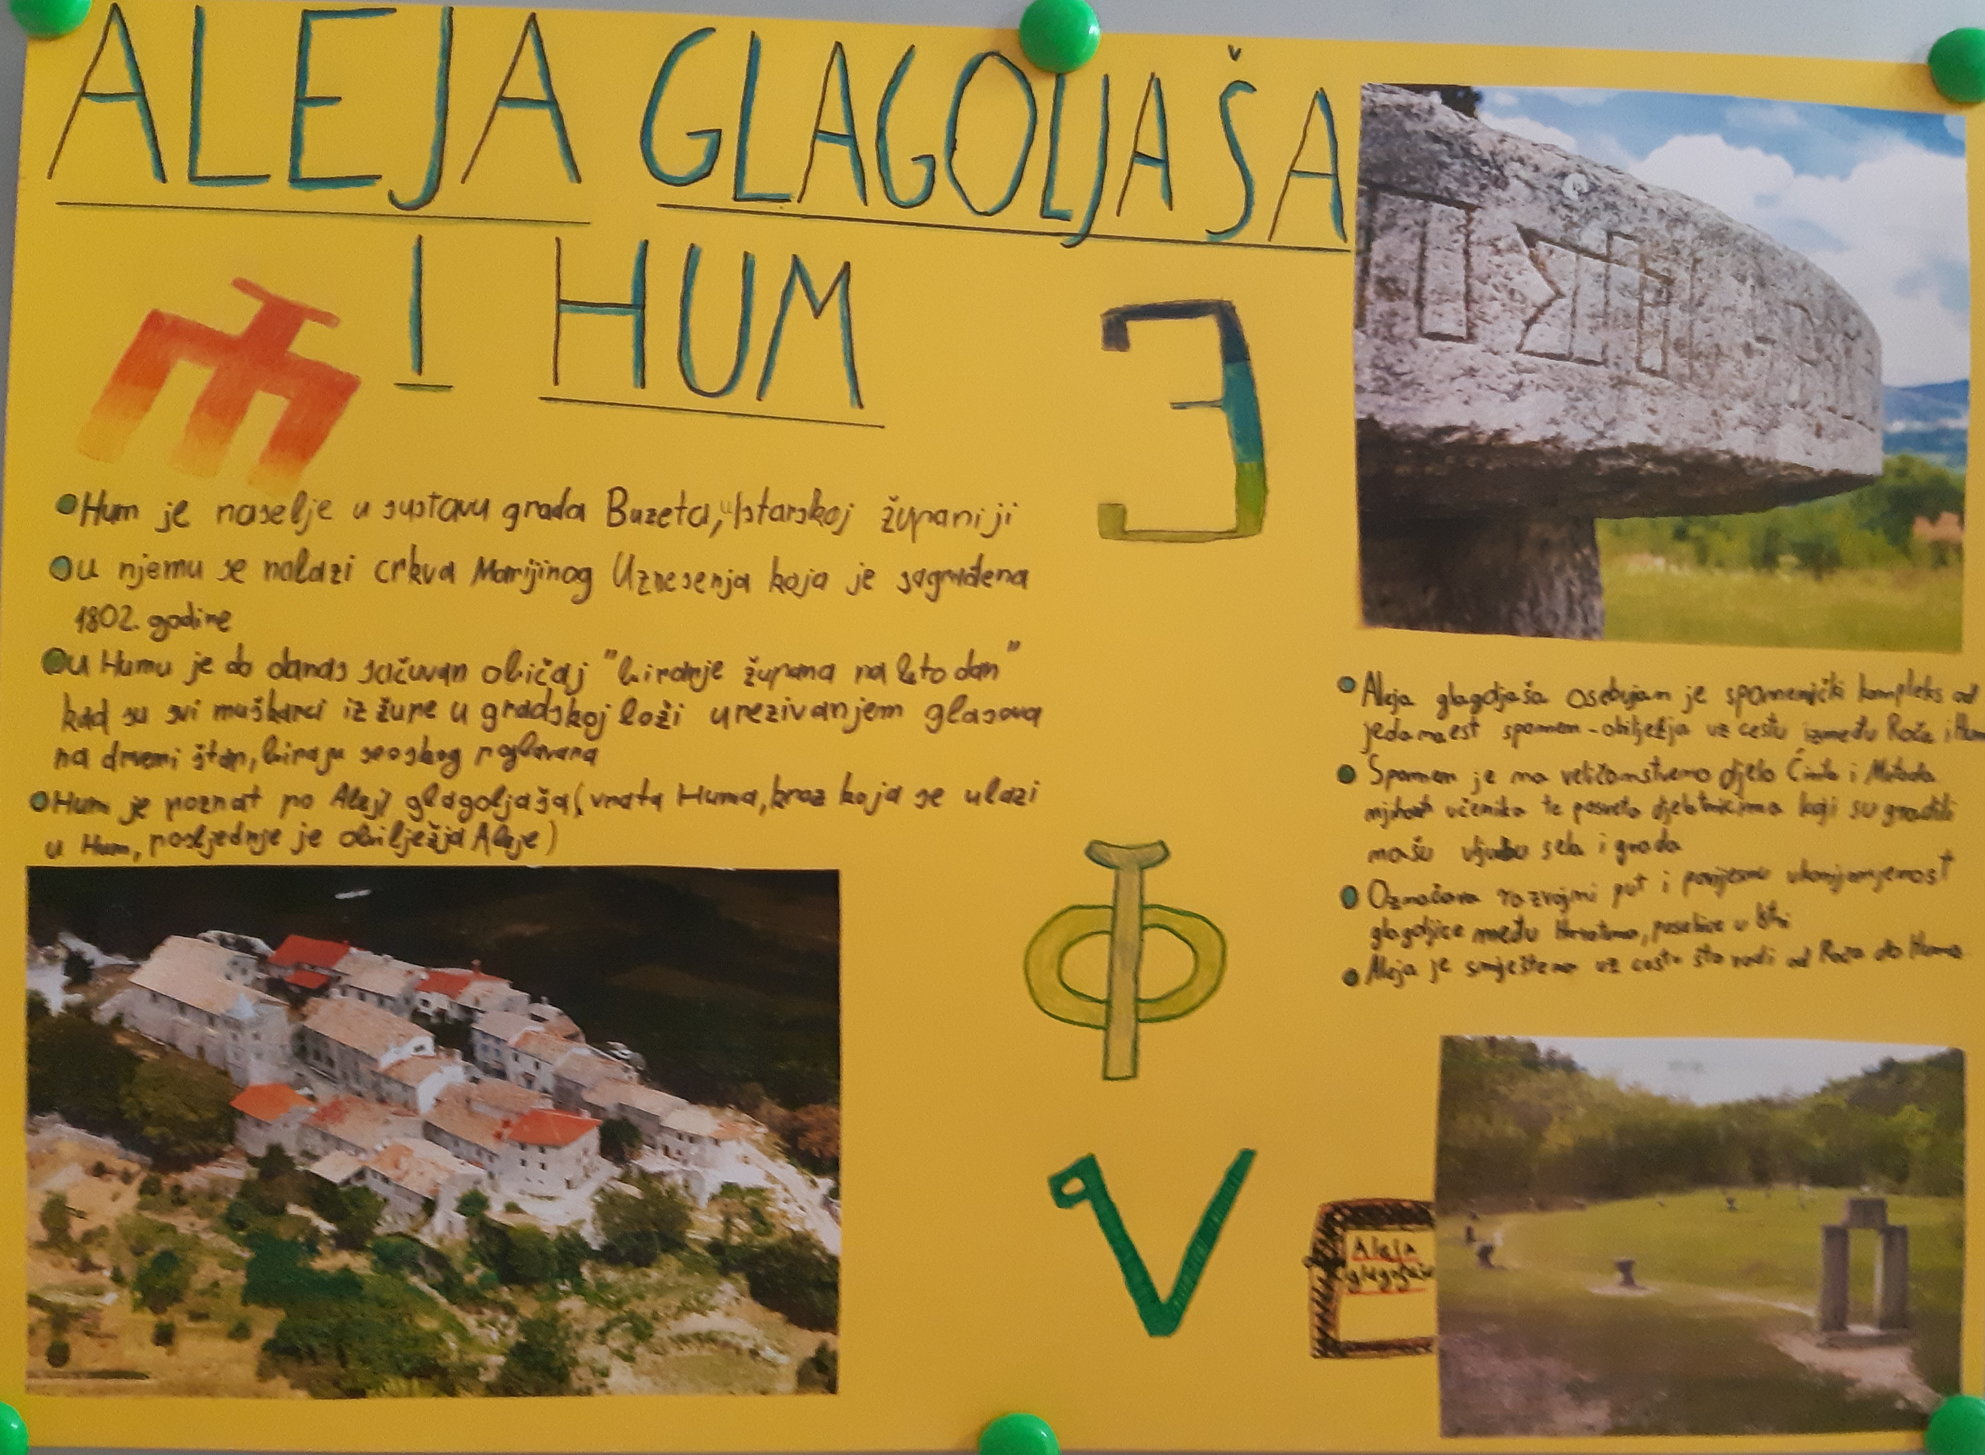 ALEJA GLAGOLJAŠA
I HUM
Hum je naselje u sustavu grada Buzeta, u Istarskoj županiji
u njemu se nalazi crkva Marijinog Uznesenja koja je sagrađena
1802. godine
u Humu je do danas sačuvan običaj "biranje župana na leto dan"
kad su svi muškarci iz župe u gradskoj loži urezivanjem glasova
na drveni štap, biraju seoskog poglavara
Hum je poznat po Aleji glagoljaša (vrata Huma, kroz koja se ulazi
u Hum, posljednje je obilježja Aleje)
Aleja glagoljaša osebujan je spomenički kompleks od
jedanaest spomen-obilježja uz cestu između Roča i Hum
Spomen je na veličanstveno djelo Ćirila i Metoda
učenika te posveta djelatnicima koji su gradili
našu sela i grada
Označava razvojni put i povijesnu ukorijenjenost
glagoljice među Hrvatima, posebice u Istri
Aleja je smještena uz cestu što vodi od Roča do Huma
Aleja
glagoljaša